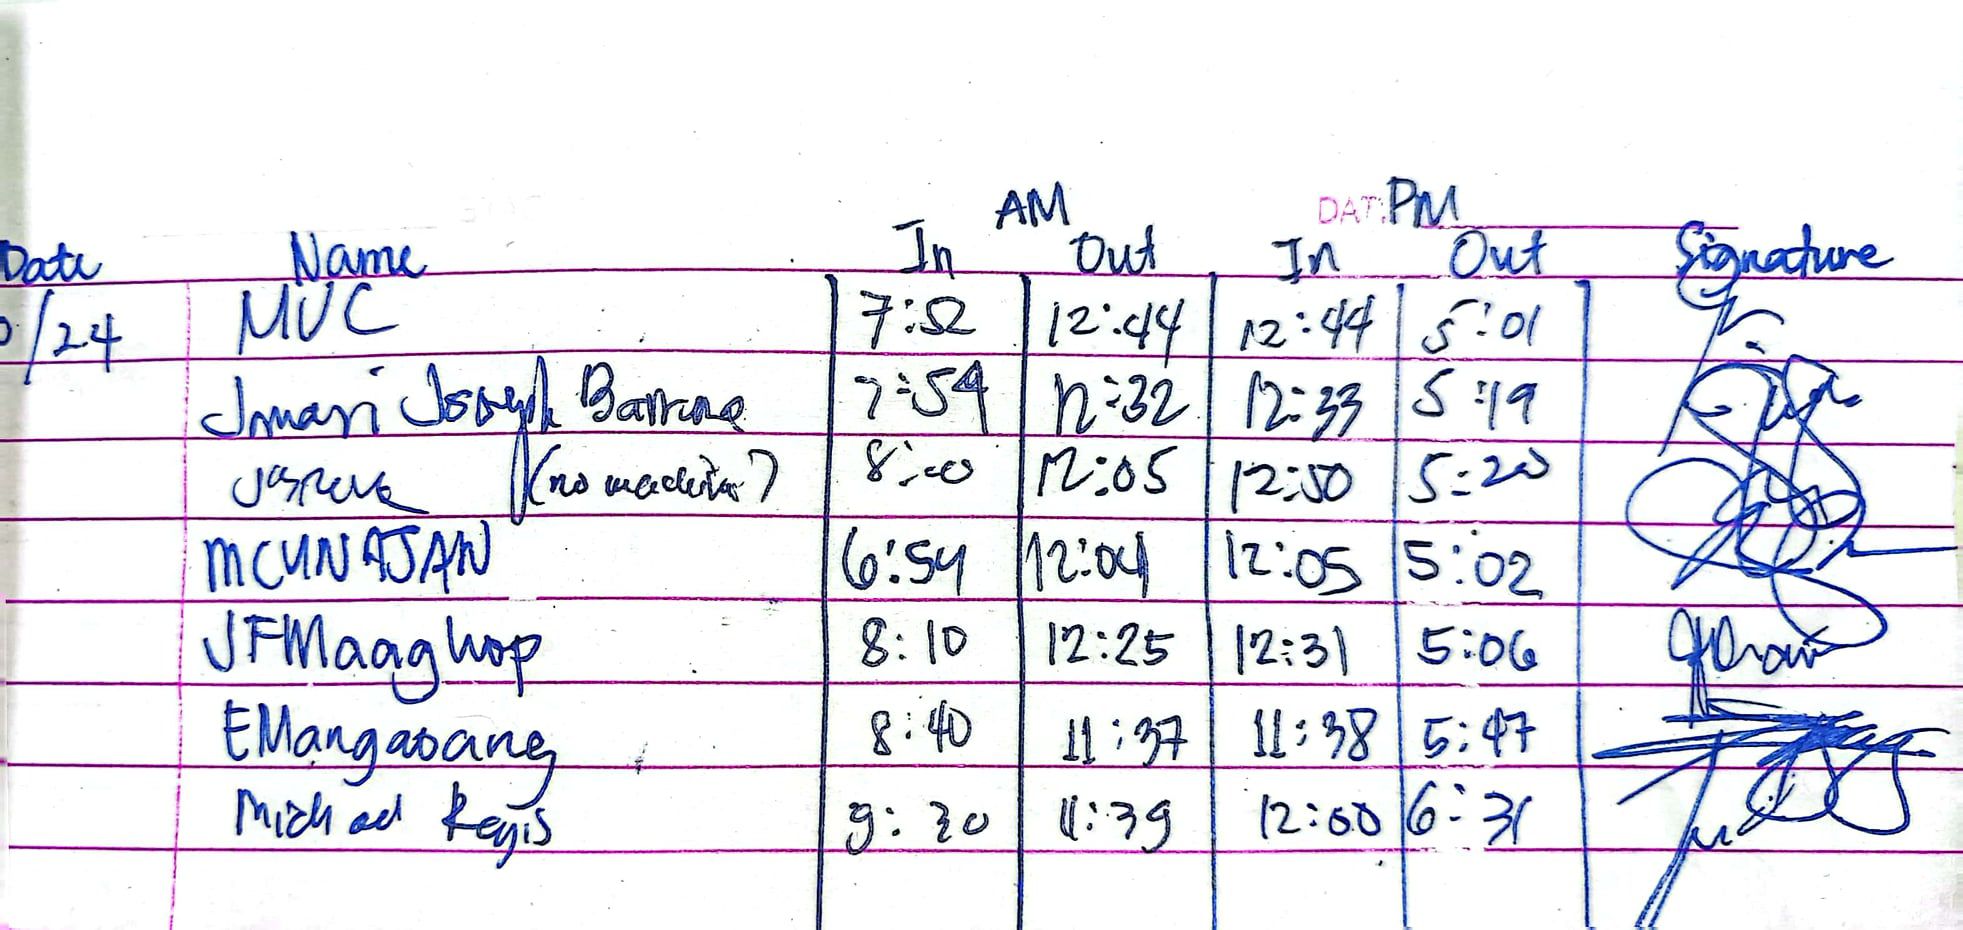 AM DATE PM
Date Name In Out In Out Signature
/24 MVC 7:52 12:44 12:44 5:01
Jmari Joseph 7:54 12:32 12:33 5:19
(no 8:00 12:05 12:50 5:20
MCUNAJAN 6:54 12:04 12:05 5:02
JFMaaghop 8:10 12:25 12:31 5:06
EMangaoang 8:40 11:37 11:38 5:47
Michael Regis 9:30 11:39 12:00 6:31